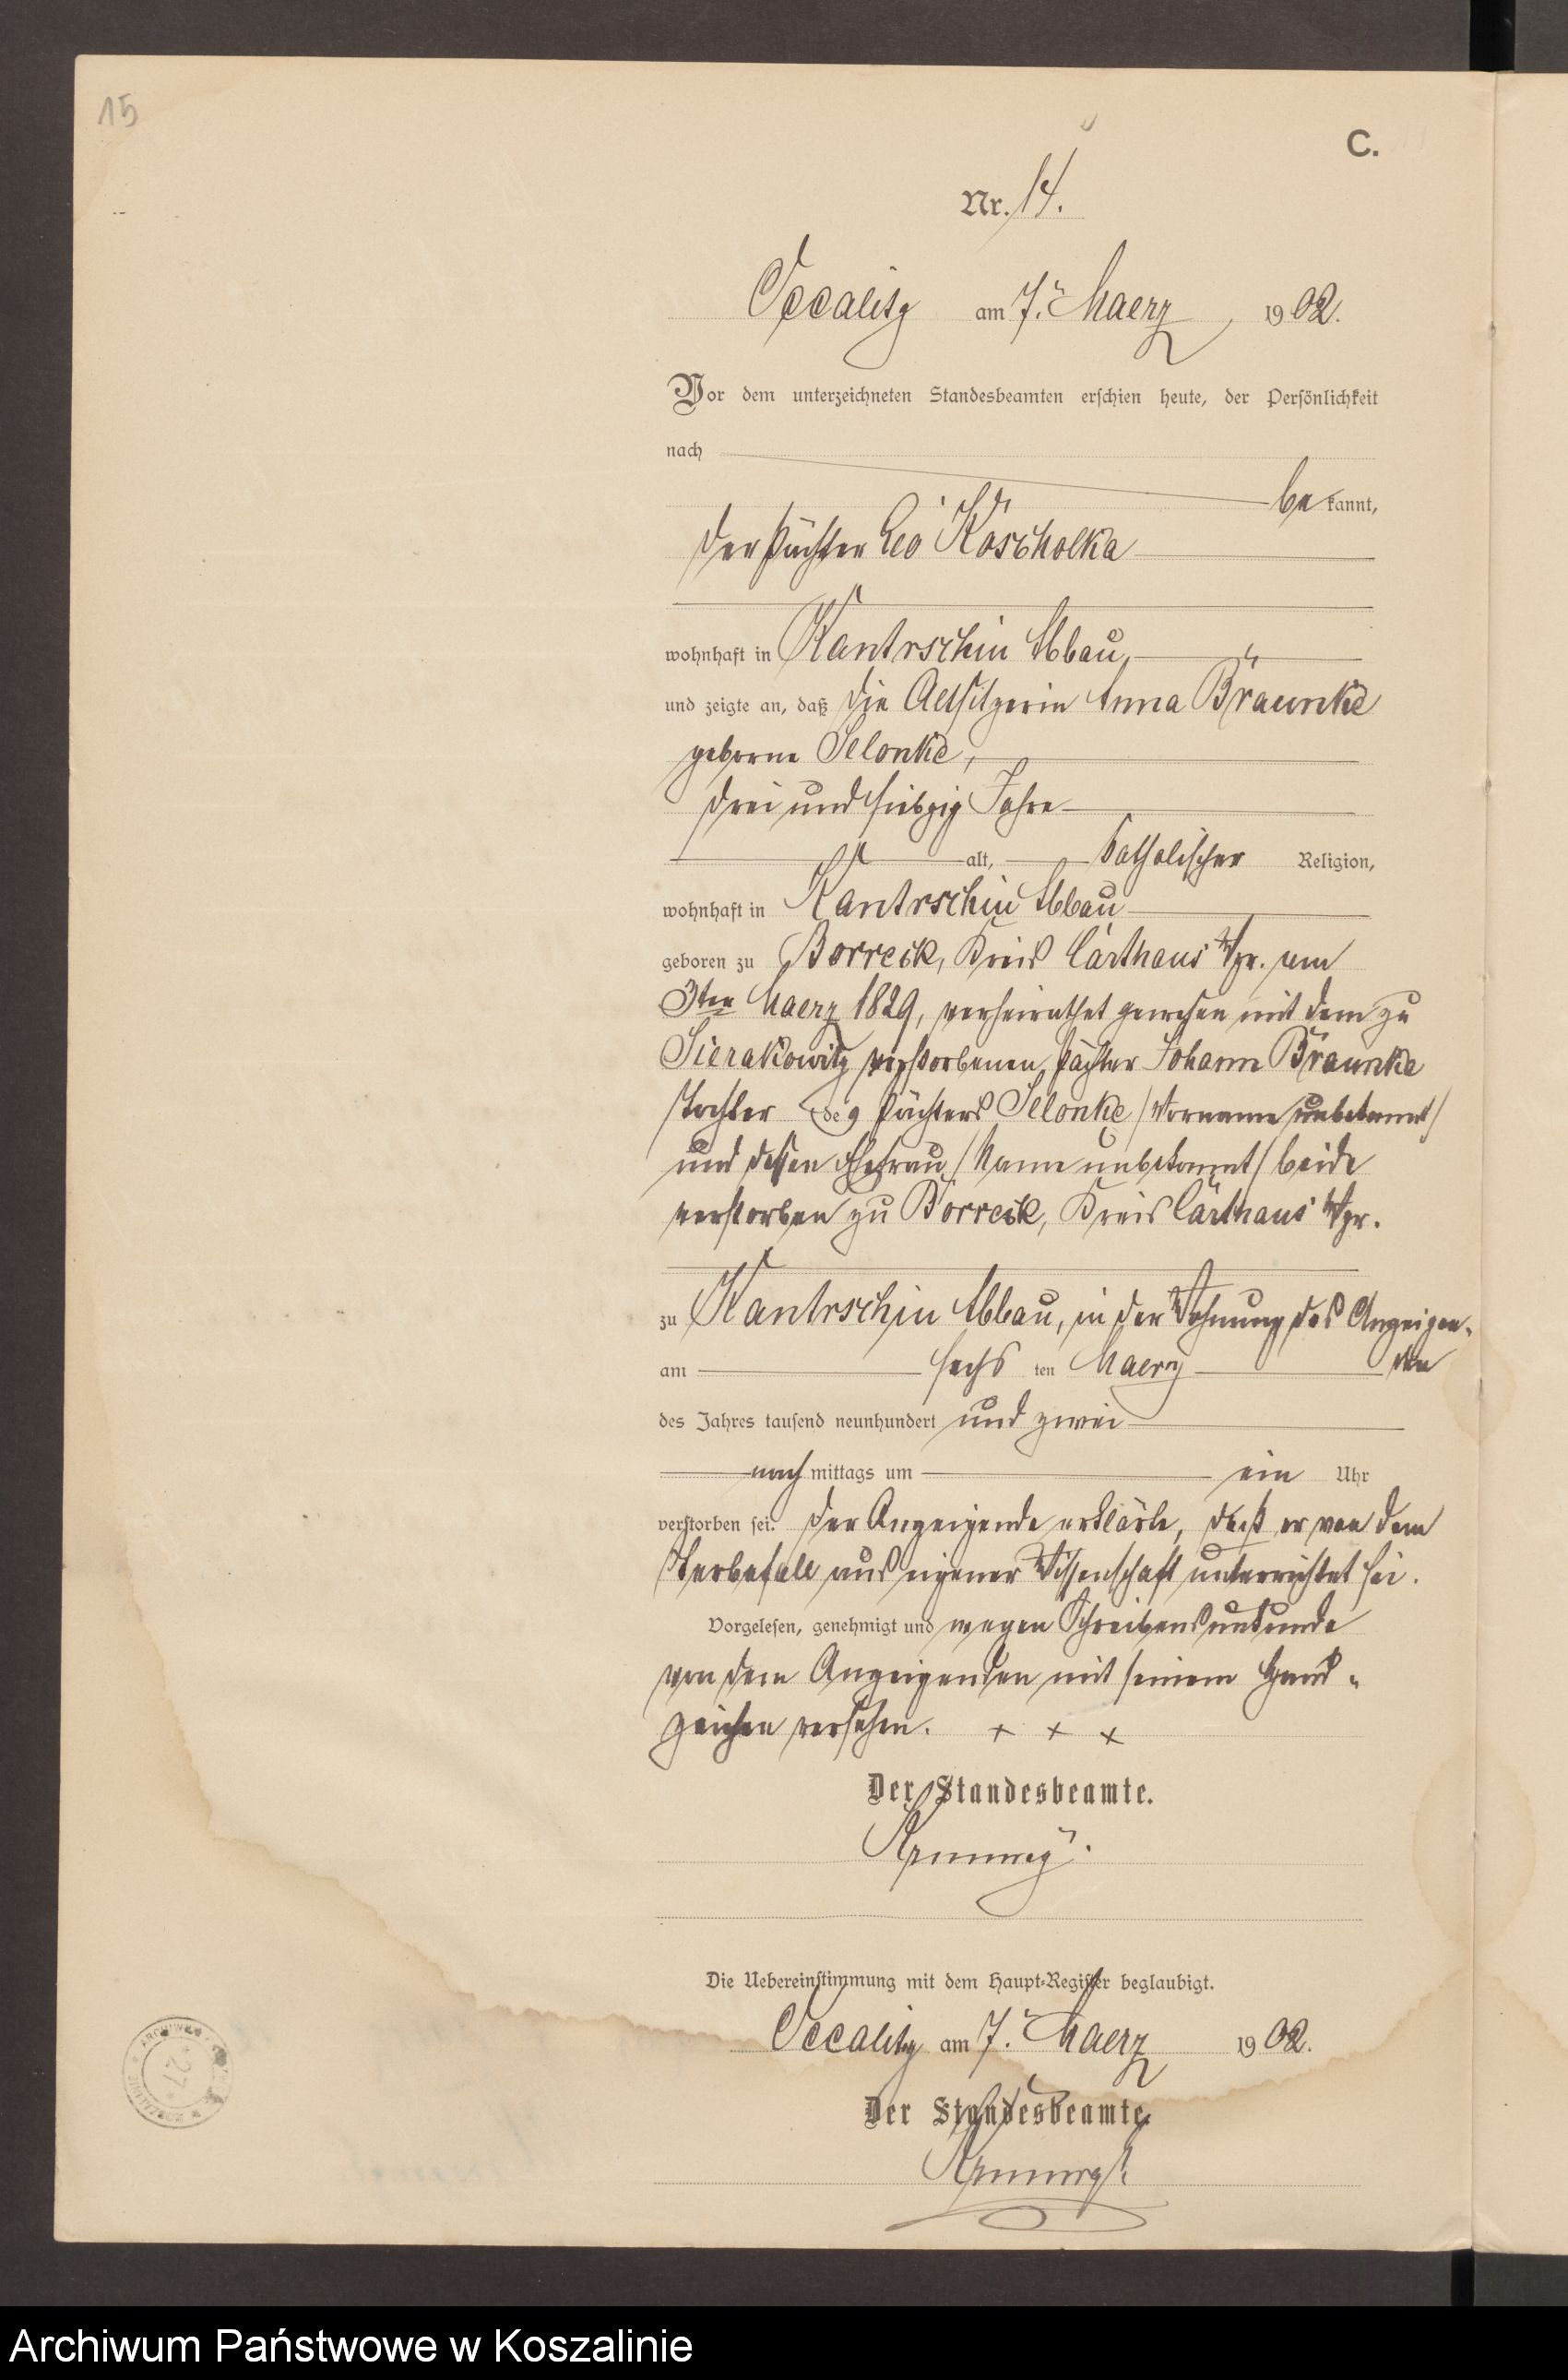 15
C.
Nr. 14.
Occalitz am 7. Maerz 1902.
Vor dem unterzeichneten Standesbeamten erschien heute, der Persönlichkeit
nach
bekannt,
der Pächter Leo Koscholka
wohnhaft in Kantrschin Abbau,
und zeigte an, daß die Altsitzerin Anna Braunke
geborne Selonke,
drei und siebzig Jahre
alt, katholischer Religion,
wohnhaft in Kantrschin Abbau
geboren zu Borreck, Kreis Carthaus Wpr. am
3ten Maerz 1829, verheirathet gewesen mit dem zu
Sierakowitz verstorbenen Pächter Johann Braunke
Tochter des Pächters Selonke /Vorname unbekannt/
und dessen Ehefrau /Name unbekannt/ beide
verstorben zu Borreck, Kreis Carthaus Wpr.
zu Kantrschin Abbau, in der Wohnung des Anzeigen-
am sechs ten Maerz den
des Jahres tausend neunhundert und zwei
nach mittags um ein Uhr
verstorben sei. Der Anzeigende erklärte, daß er von dem
Sterbefall aus eigener Wissenschaft unterrichtet sei.
Vorgelesen, genehmigt und wegen Schreibensunkunde
von dem Anzeigenden mit seinem Hand-
zeichen versehen. + + +
Der Standesbeamte.
Die Uebereinstimmung mit dem Haupt-Register beglaubigt.
Occalitz am 7. Maerz 1902.
Der Standesbeamte.
27
Archiwum Państwowe w Koszalinie